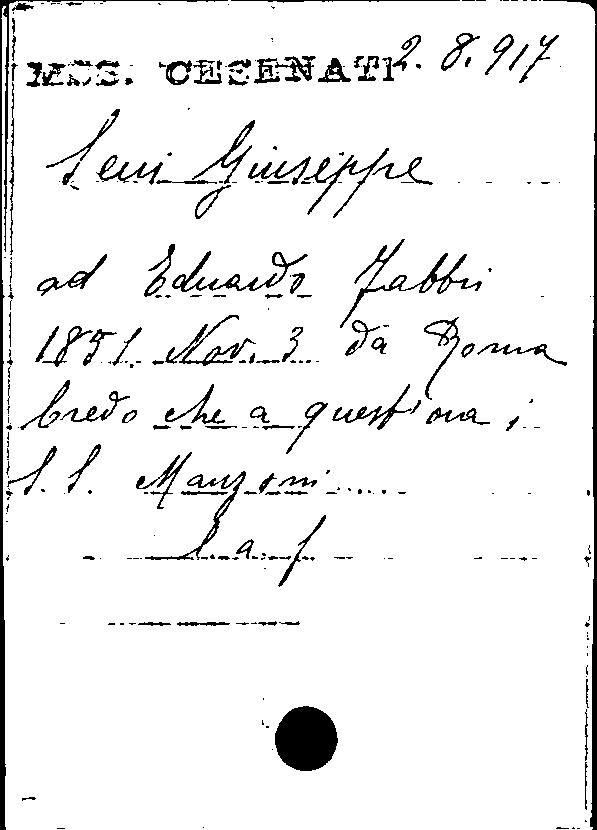 MSS. CESENATI 2. 8. 917
Seni Giuseppe
ad Eduardo Fabbri
1851. Nov. 3 da Roma
Credo che a quest'ora i
S. S. Manzoni .....
l. a. f.